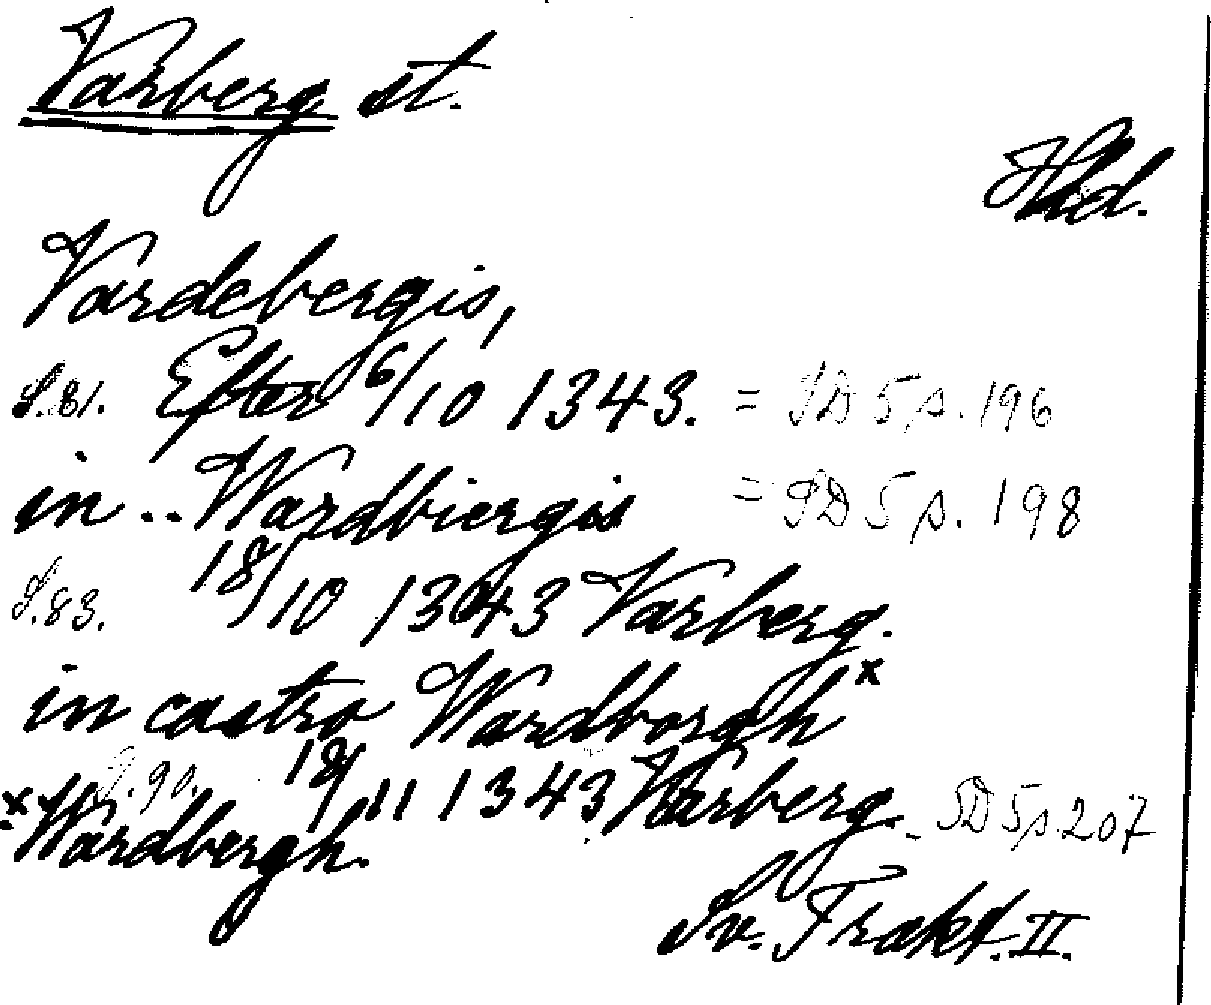 Varberg st.
Hld.
Vardebergis,
S.81. Efter 6/10 1343. = SD 5 p. 196
in .. Wardbiergis = SD 5 p. 198
S.83. 18/10 1343 Varberg.
in castro Wardborgh x
S.90. 18/11 1343 Varberg. = SD 5 p. 207
x Wardbergh.
Sv. Trakt. II.